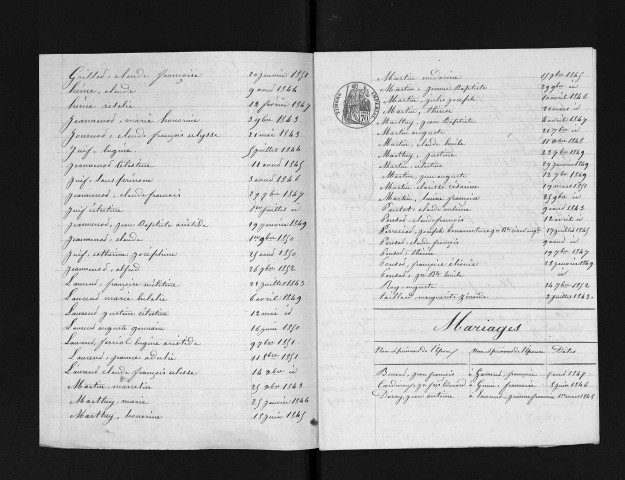 Grillod, claude françoise 20 janvier 1851
hérine, claude 9 aout 1844
hérine rosalie 12 février 1847
Jeannenod, marie honorine 3 9bre 1843
Journod, claude françois ulysse 21 mai 1843
Juif, Eugène 5 juillet 1844
Jeannenod célestine 11 aout 1845
Juif, 3 aout 1846
Jeannenod, claude francois 29 9bre 1847
Juif célestine 1er juillet id
Jeannenod, jean Baptiste aristide 19 janvier 1849
Jeannenod, claude 1er 9bre 1850
Juif, catherine joséphine 25 aout 1850
Jeannenod, alfred 26 9bre 1852
Laurent, françoise 22 juillet 1843
Laurent marie 6 avril 1849
Laurent justine célestine 12 mai id
Laurent auguste germain 16 juin 1850
Laurent, ferréol Eugène aristide 9 7bre 1851
Laurent, jeanne adèle 11 8bre 1851
Laurent claude françois ulysse 14 Xbre id
Martin, marcelin 25 Xbre 1843
Marthey, marie 25 janvier 1846
Marthey, honorine 15 juin 1845
Martin 17 9bre 1845
Martin, Baptiste 29 9bre id
Martin, jules joseph 10 avril 1846
Martin, thérèse 20 mai id
Marthey, jean Baptiste 4 avril 1847
Martin auguste 21 7bre id
Martin, claude Emile 11 Xbre 1848
Marthey, justine 23 9bre 1849
Martin, célestine 29 janvier 1849
Martin, jean auguste 12 7bre 1849
Martin, clarisse césarine 19 mars 1851
Martin, jeanne francoise 25 9bre id
Ponsot, claude antoine 9 aout 1843
Ponsot, claude francois 12 avril id
joseph bonaventure 17 juillet 1845
Ponsot, claude françois 9 aout id
Ponsot, thérèse 19 7bre 1847
Ponsot, françoise 28 janvier 1849
Ponsot, Bte Emile id
Rey, auguste 14 7bre 1852
marguerite 3 juillet 1843
TIMBRE IMPERIAL
70
Mariages
Nom et prénoms de l'époux Nom et prénoms de l'épouse Dates
jean françois à françoise 6 avril 1847
à françoise 3 juin 1846
Deray, jean antoine à Laurent, jeanne françoise 1er mars 1845